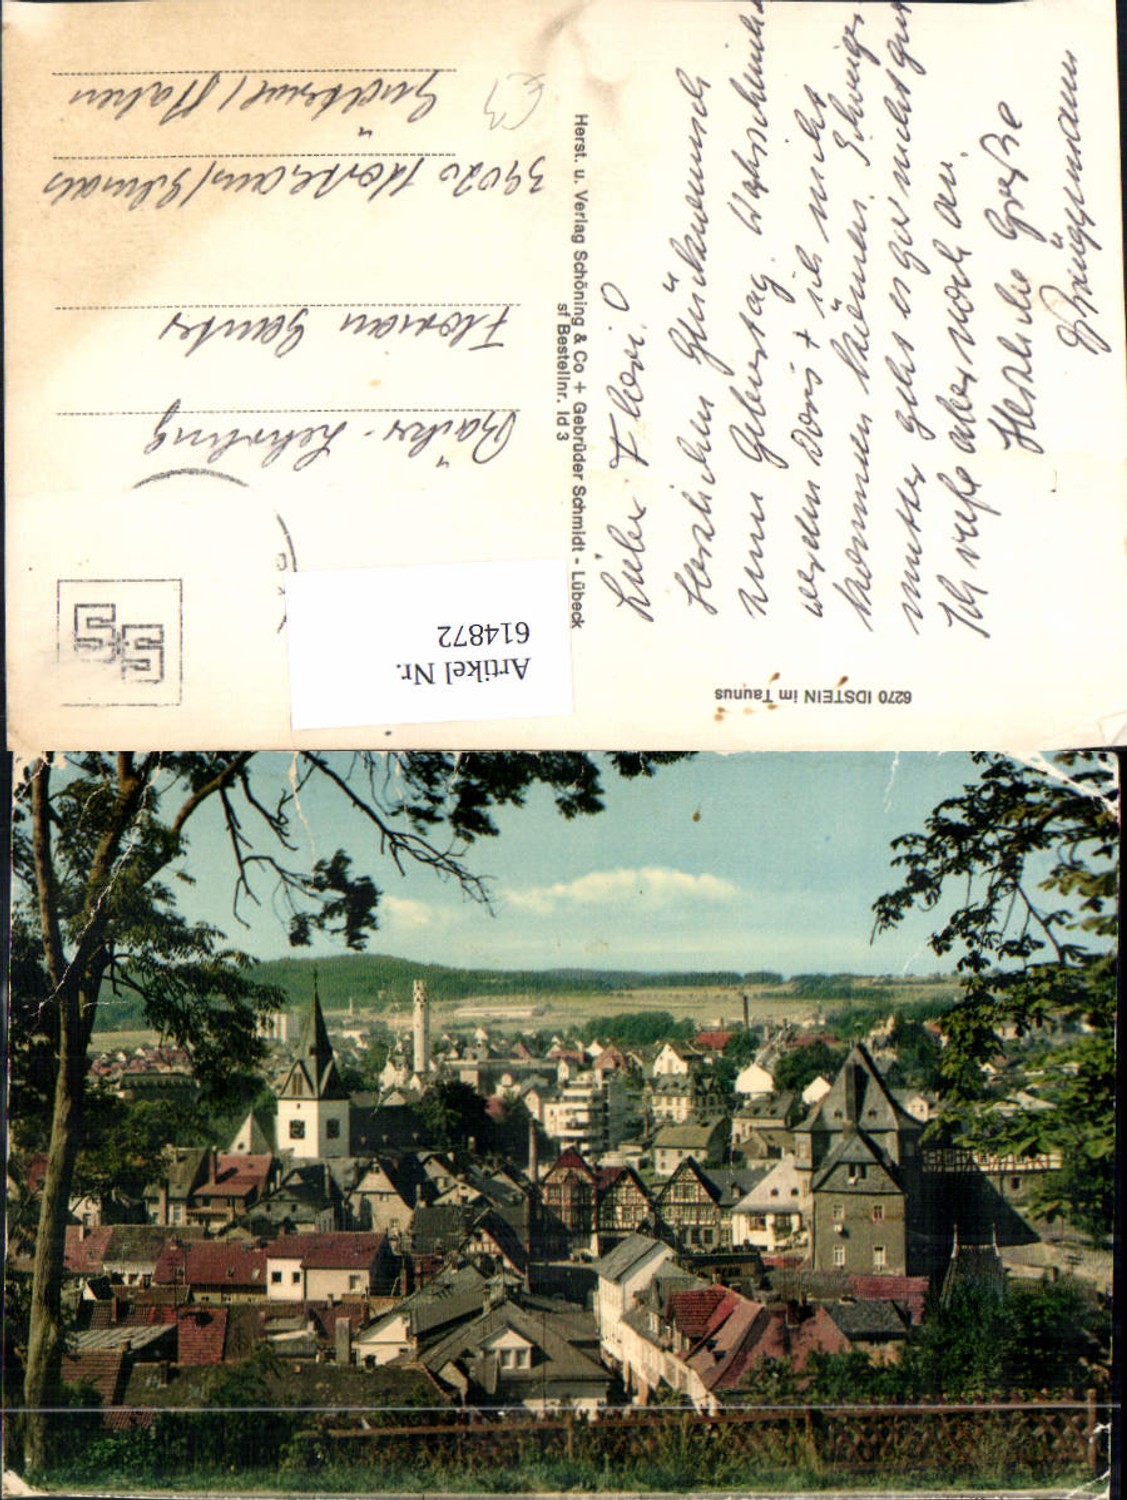 6270 IDSTEIN im Taunus
Lieber Flori!
Herzlichen Glückwunsch
zum Geburtstag. Wahrscheinlich
werden Doris + ich nicht
kommen können. Schwieger-
mutter geht es gar nicht gut
Ich rufe aber noch an.
Herzliche Grüße
Brüggemann
Herst. u. Verlag Schöning & Co + Gebrüder Schmidt - Lübeck
sf Bestellnr. Id 3
Artikel Nr.
614872
Bäcker-Lehrling
Florian
39020
Südtirol / Italien